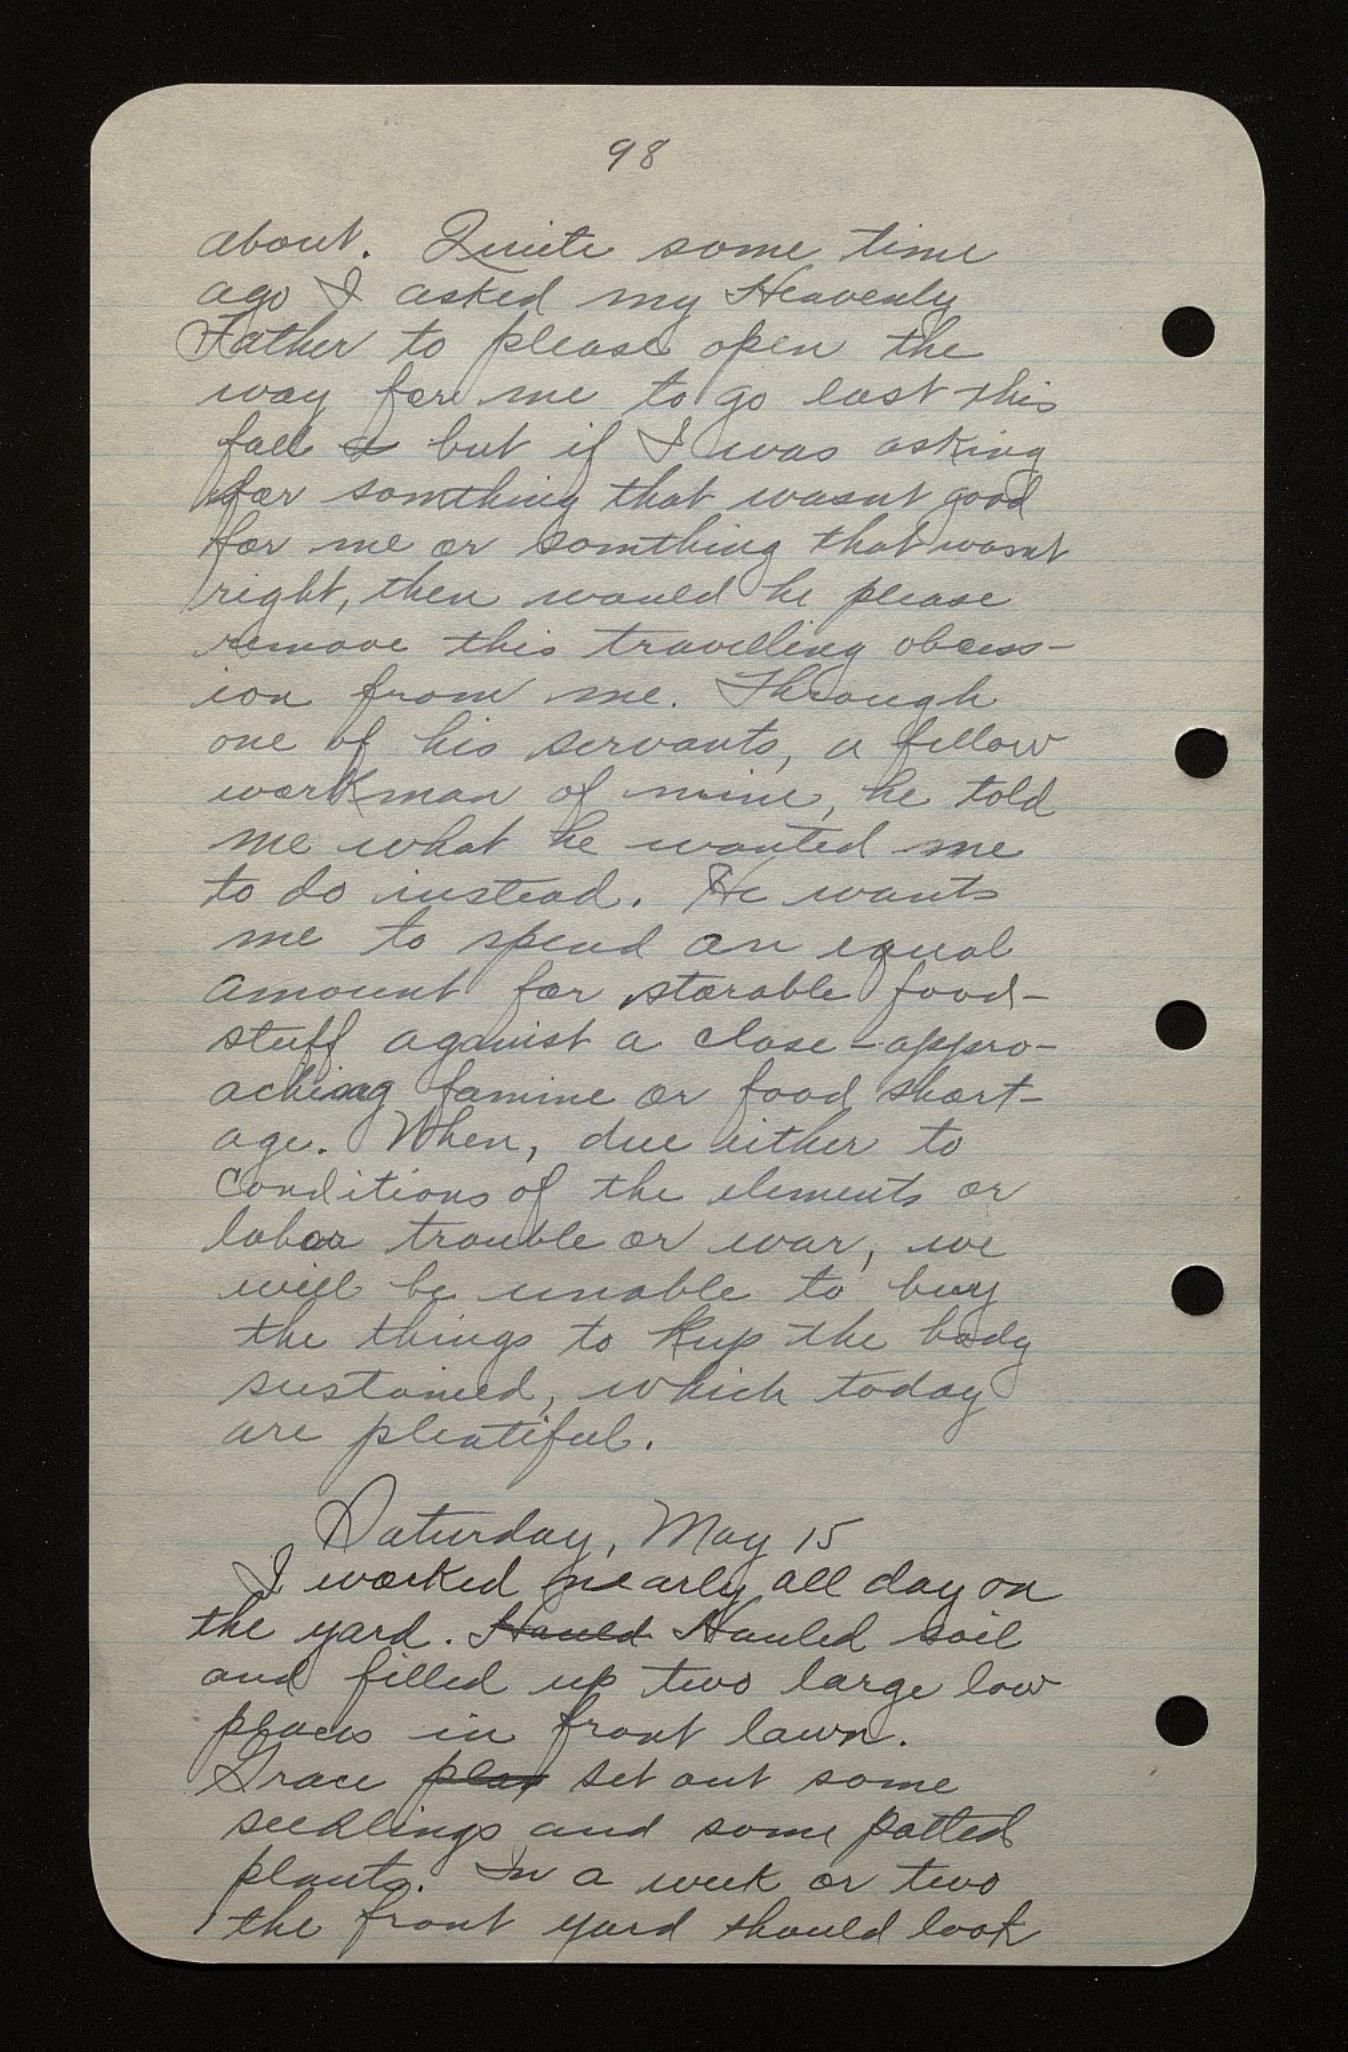 98
about. Quite some time
ago I asked my Heavenly
Father to please open the
way for me to go east this
fall a but if I was asking
for somthing that wasnt good
for me or somthing that wasnt
right, then would he please
remove this travelling obsess-
ion from me. Through
one of his servants, a fellow
workman of mine, he told
me what he wanted me
to do instead. He wants
me to spend an equal
amount for storable food-
stuff against a close-appro-
aching famine or food short-
age. When, due either to
conditions of the elements or
labor trouble or war, we
will be unable to buy
the things to keep the body
sustained, which today
are plentiful.
Saturday, May 15
I worked nearly all day on
the yard. Hauld Hauled soil
and filled up two large low
places in front lawn.
Grace plan set out some
seedlings and some potted
plants. In a week or two
the front yard should look